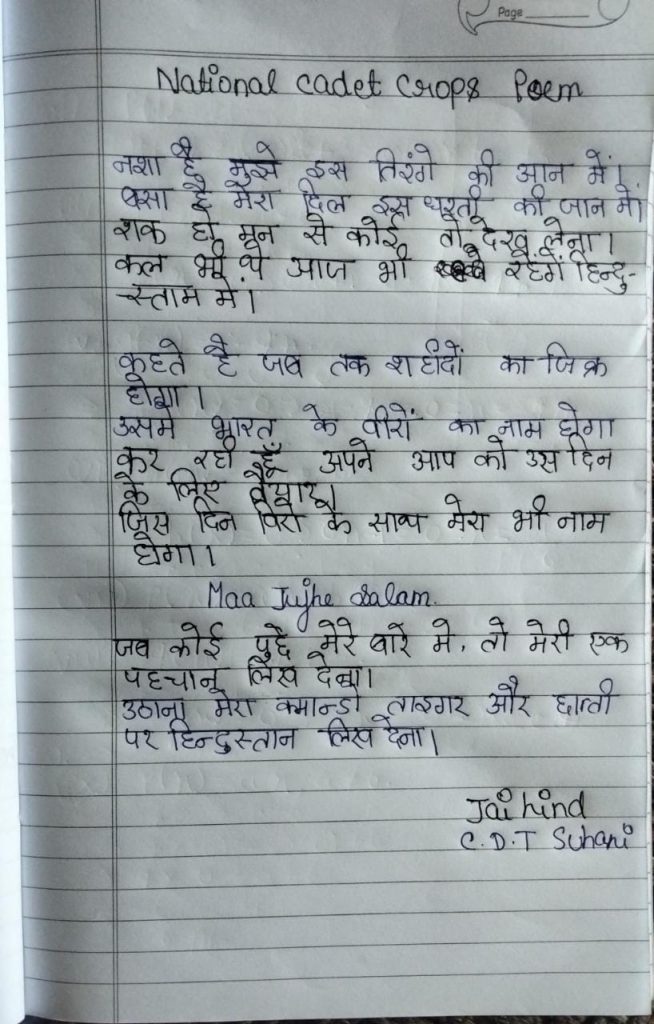 Page
National Cadet Crops Poem
नशा है मुझे इस तिरंगे की आन में।
बसा है मेरा दिल इस धरती की जान में।
शक हो मन से कोई तो देख लेना।
कल भी थे आज भी रहेंगे हिन्दु-
स्ताम में।
कहते है जब तक शहीदों का जिक्र
होगा।
उसमे भारत के वीरों का नाम होगा
कर रही हूँ अपने आप को उस दिन
के लिए तैयार।
जिस दिन विरो के साथ मेरा भी नाम
होगा।
Maa Tujhe Salam.
जब कोई पुछे मेरे बारे मे, तो मेरी एक
पहचान लिख देना।
उठाना मेरा कमान्डो ताइगर और छाती
पर हिन्दुस्तान लिख देना।
Jai hind
C.D.T Suhani